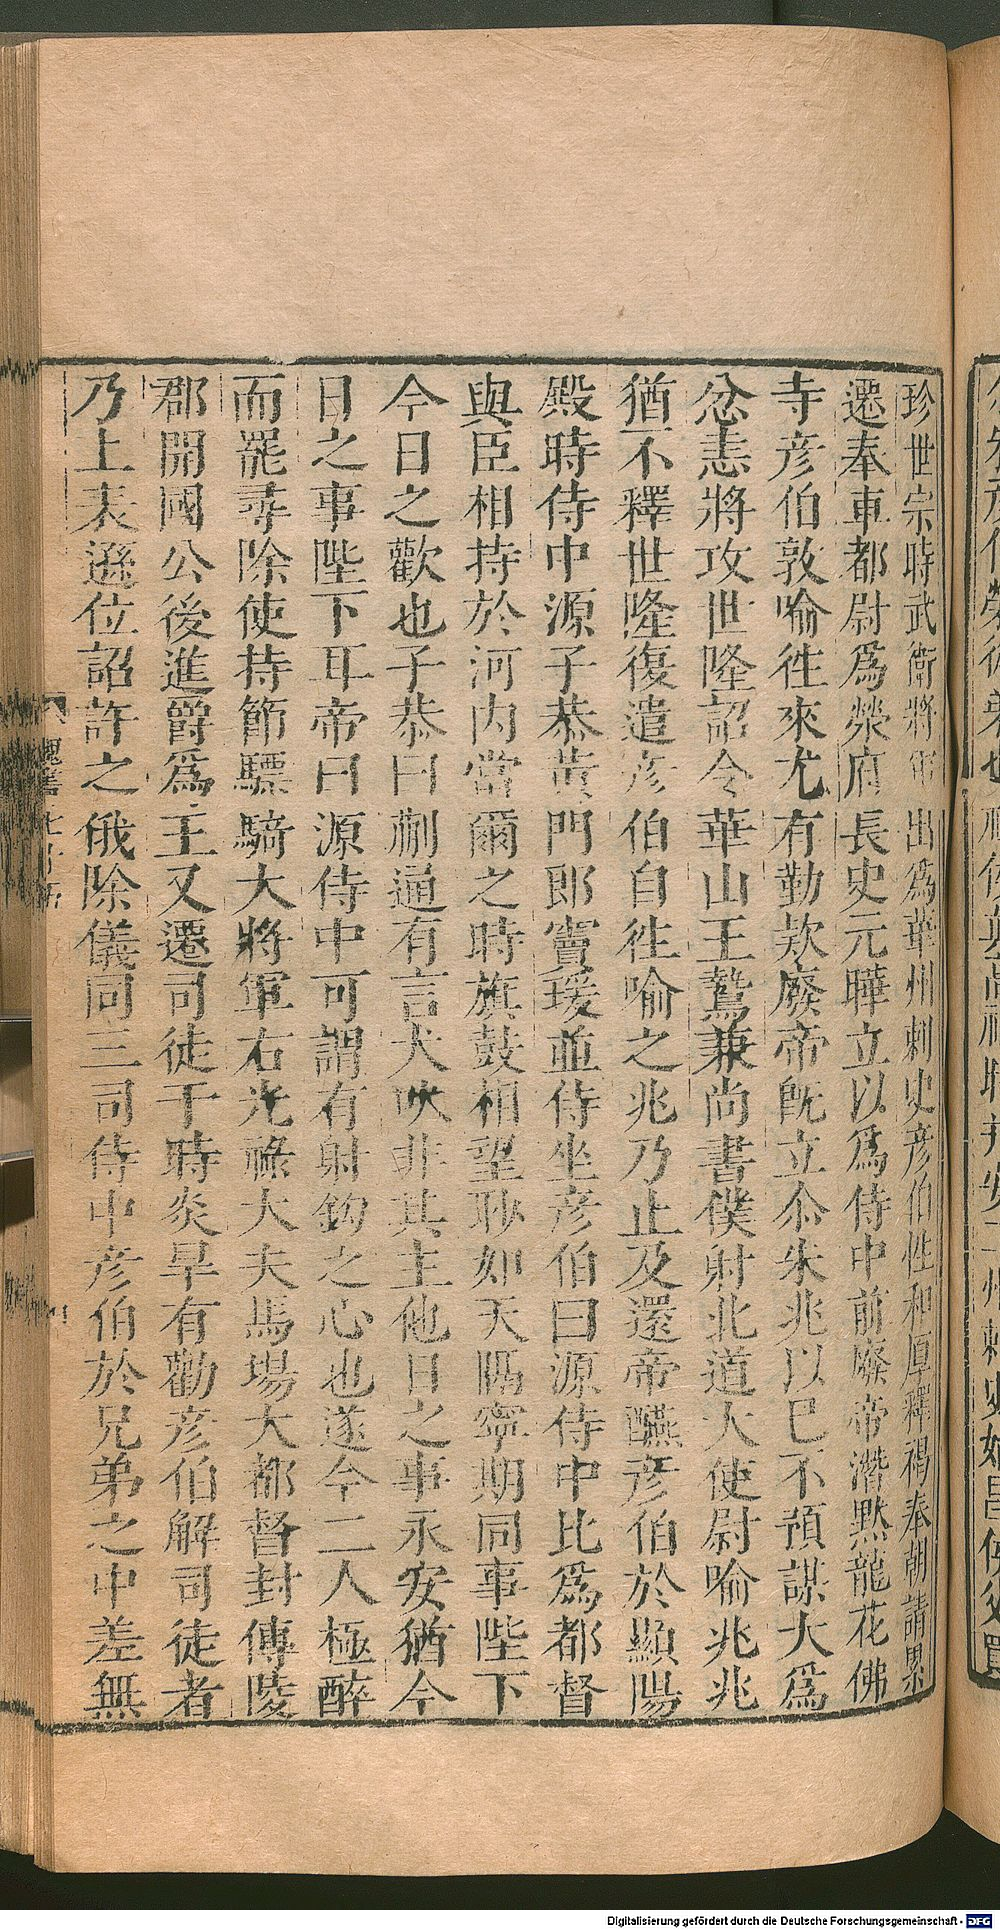 珍世宗時武衛將軍出爲華州刺史彦伯性和厚釋褐奉朝請累
遷奉車都尉爲滎府長史元曄立以爲侍中前廢帝潛黙龍花佛
寺彦伯敦喻徃來尤有勤欵廢帝既立尒朱兆以巳不預謀大爲
忿恚將攻世隆詔令華山王鷙兼尚書僕射北道大使尉喻兆兆
猶不釋世隆復遣彦伯自徃喻之兆乃止及還帝醼彦伯於顯陽
殿時侍中源子恭黄門郎竇瑗並侍坐彦伯曰源侍中比爲都督
與臣相持於河内當爾之時旗鼓相望眇如天隔寧期同事陛下
今日之歡也子恭曰蒯通有言犬吠非其主他日之事永安猶今
日之事陛下耳帝曰源侍中可謂有射鈎之心也遂令二人極醉
而罷尋除使持節驃騎大將軍右光祿大夫馬場大都督封博陵
郡開國公後進爵爲王又遷司徒于時炎旱有勸彦伯解司徒者
乃上表遜位詔許之俄除儀同三司侍中彦伯於兄弟之中差無
Digitalisierung gefördert durch die Deutsche Forschungsgemeinschaft - DFG